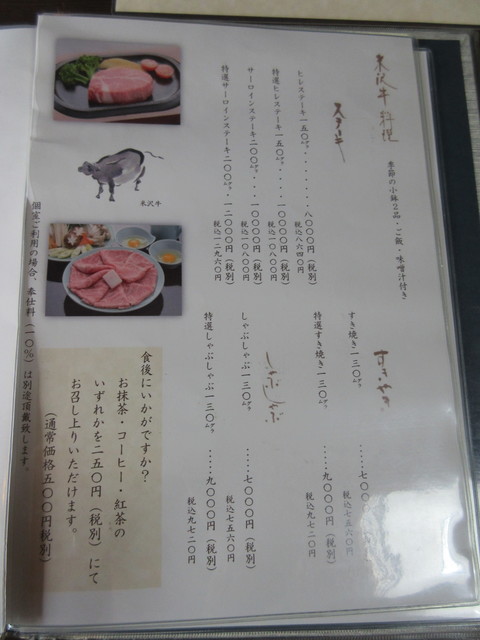 米沢牛料理
季節の小鉢2品・ご飯・味噌汁付き
ステーキ
ヒレステーキ一五〇㌘・・・・・・・八〇〇〇円（税別）
税込八六四〇円
特選ヒレステーキ一五〇㌘・・・一〇〇〇〇円（税別）
税込一〇八〇〇円
サーロインステーキ二〇〇㌘・・・一〇〇〇〇円（税別）
税込一〇八〇〇円
特選サーロインステーキ二〇〇㌘・一二〇〇〇円（税別）
税込一二九六〇円
すきやき
すき焼き一三〇㌘・・・・・七〇〇
税込七五六〇円
特選すき焼き一三〇㌘・・・・・九〇〇〇円（税別）
税込九七二〇円
しゃぶしゃぶ
しゃぶしゃぶ一三〇㌘・・・・・七〇〇〇円（税別）
税込七五六〇円
特選しゃぶしゃぶ一三〇㌘・・・・・九〇〇〇円（税別）
税込九七二〇円
米沢牛
食後にいかがですか？
お抹茶・コーヒー・紅茶の
いずれかを二五〇円（税別）にて
お召し上りいただけます。
（通常価格五〇〇円税別）
個室ご利用の場合、奉仕料（一〇％）は別途頂戴致します。